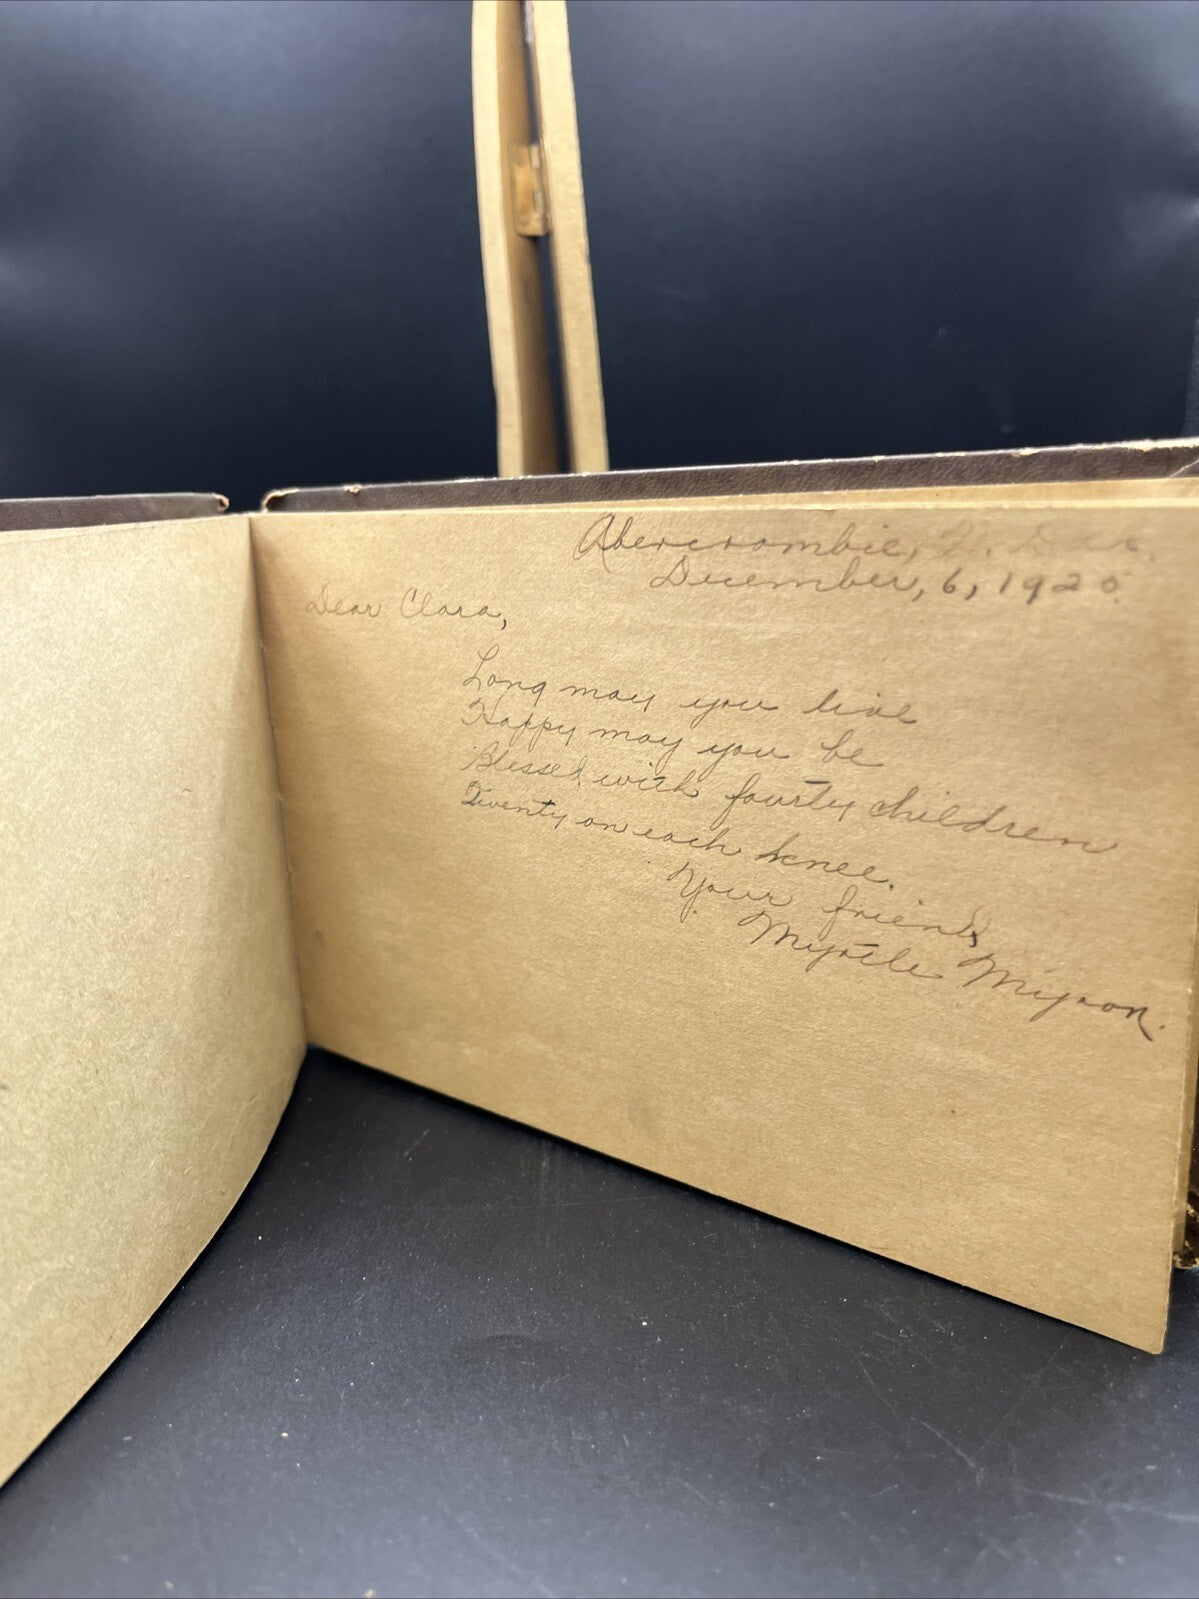 Abercrombie, N. Dak.
December, 6, 1925.
Dear Clara,
Long may you live
Happy may you be
Blessed with fourty children
Twenty on each knee.
Your friend,
Myrtle Myron.